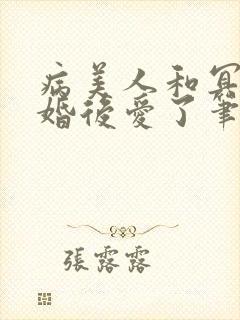 病美人和冥
婚後愛了筆
張露露